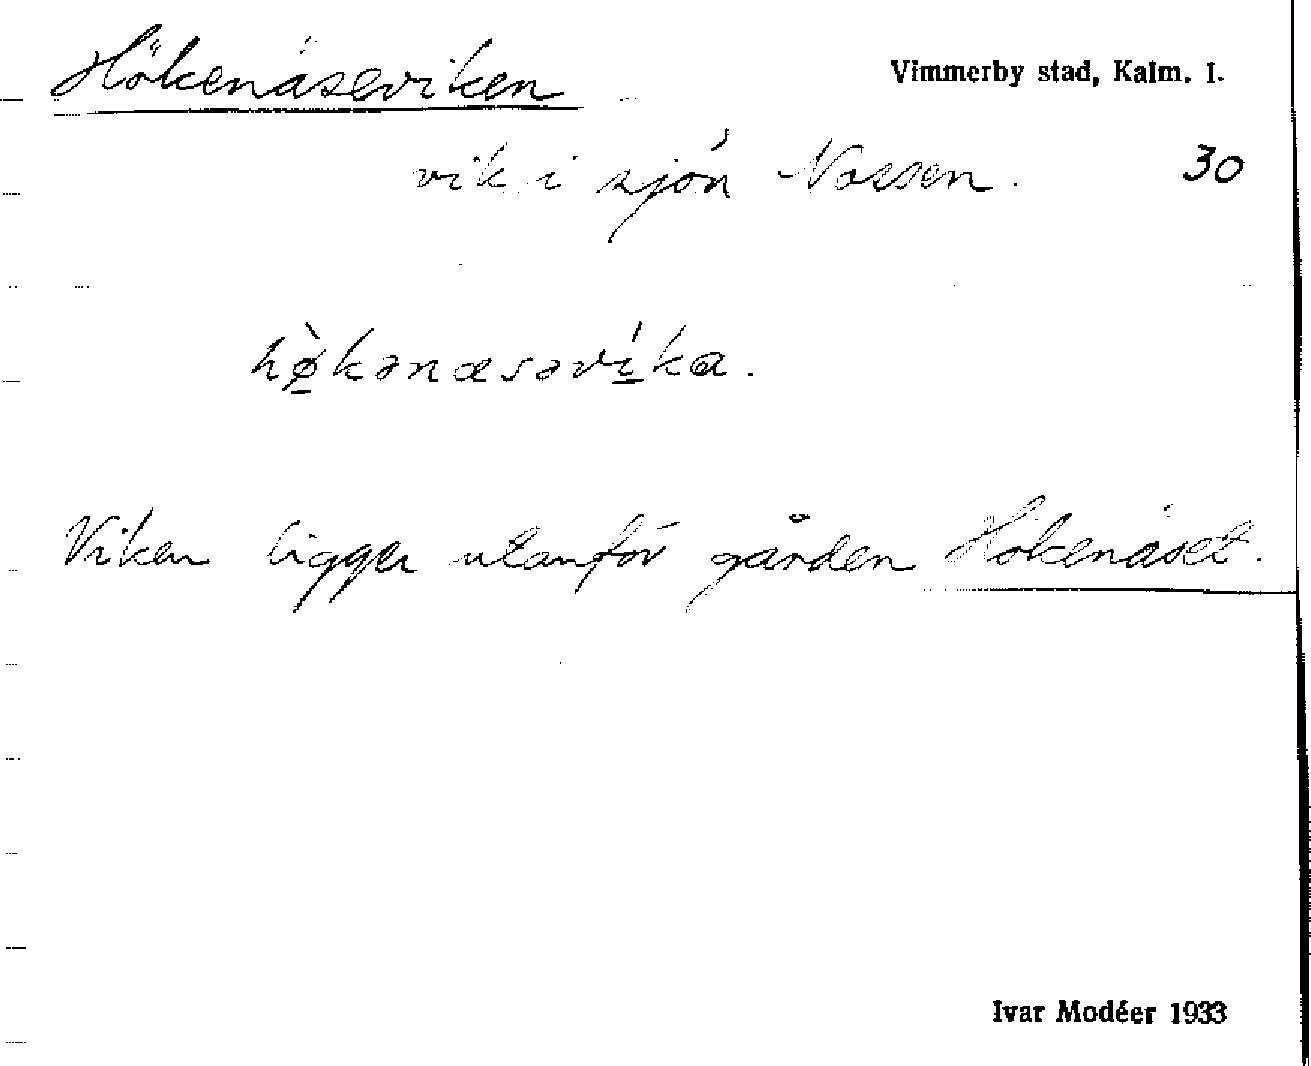 Hökenäseviken
Vimmerby stad, Kalm. l.
vik i sjön Nossen.
30
hø̲̀kənæsəví̲ka.
Viken ligger utanför gården Hökenäset.
Ivar Modéer 1933